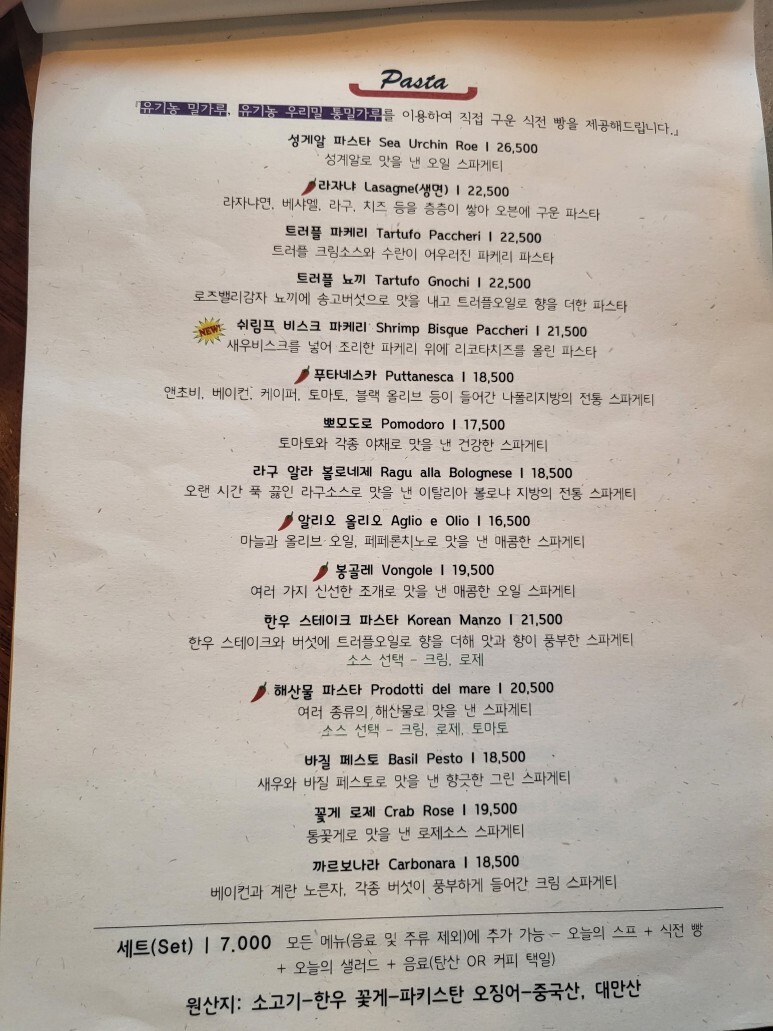 Pasta
『유기농 밀가루, 유기농 우리밀 통밀가루를 이용하여 직접 구운 식전 빵을 제공해드립니다.』
성게알 파스타 Sea Urchin Roe | 26,500
성게알로 맛을 낸 오일 스파게티
라자냐 Lasagne(생면) | 22,500
라자냐면, 베샤멜, 라구, 치즈 등을 층층이 쌓아 오븐에 구운 파스타
트러플 파케리 Tartufo Paccheri | 22,500
트러플 크림소스와 수란이 어우러진 파케리 파스타
트러플 뇨끼 Tartufo Gnochi | 22,500
로즈밸리감자 뇨끼에 송고버섯으로 맛을 내고 트러플오일로 향을 더한 파스타
NEW! 쉬림프 비스크 파케리 Shrimp Bisque Paccheri | 21,500
새우비스크를 넣어 조리한 파케리 위에 리코타치즈를 올린 파스타
푸타네스카 Puttanesca | 18,500
앤초비, 베이컨, 케이퍼, 토마토, 블랙 올리브 등이 들어간 나폴리지방의 전통 스파게티
뽀모도로 Pomodoro | 17,500
토마토와 각종 야채로 맛을 낸 건강한 스파게티
라구 알라 볼로네제 Ragu alla Bolognese | 18,500
오랜 시간 푹 끓인 라구소스로 맛을 낸 이탈리아 볼로냐 지방의 전통 스파게티
알리오 올리오 Aglio e Olio | 16,500
마늘과 올리브 오일, 페페론치노로 맛을 낸 매콤한 스파게티
봉골레 Vongole | 19,500
여러 가지 신선한 조개로 맛을 낸 매콤한 오일 스파게티
한우 스테이크 파스타 Korean Manzo | 21,500
한우 스테이크와 버섯에 트러플오일로 향을 더해 맛과 향이 풍부한 스파게티
소스 선택 - 크림, 로제
해산물 파스타 Prodotti del mare | 20,500
여러 종류의 해산물로 맛을 낸 스파게티
소스 선택 - 크림, 로제, 토마토
바질 페스토 Basil Pesto | 18,500
새우와 바질 페스토로 맛을 낸 향긋한 그린 스파게티
꽃게 로제 Crab Rose | 19,500
통꽃게로 맛을 낸 로제소스 스파게티
까르보나라 Carbonara | 18,500
베이컨과 계란 노른자, 각종 버섯이 풍부하게 들어간 크림 스파게티
세트(Set) | 7.000 모든 메뉴(음료 및 주류 제외)에 추가 가능 - 오늘의 스프 + 식전 빵
+ 오늘의 샐러드 + 음료(탄산 OR 커피 택일)
원산지: 소고기-한우 꽃게-파키스탄 오징어-중국산, 대만산